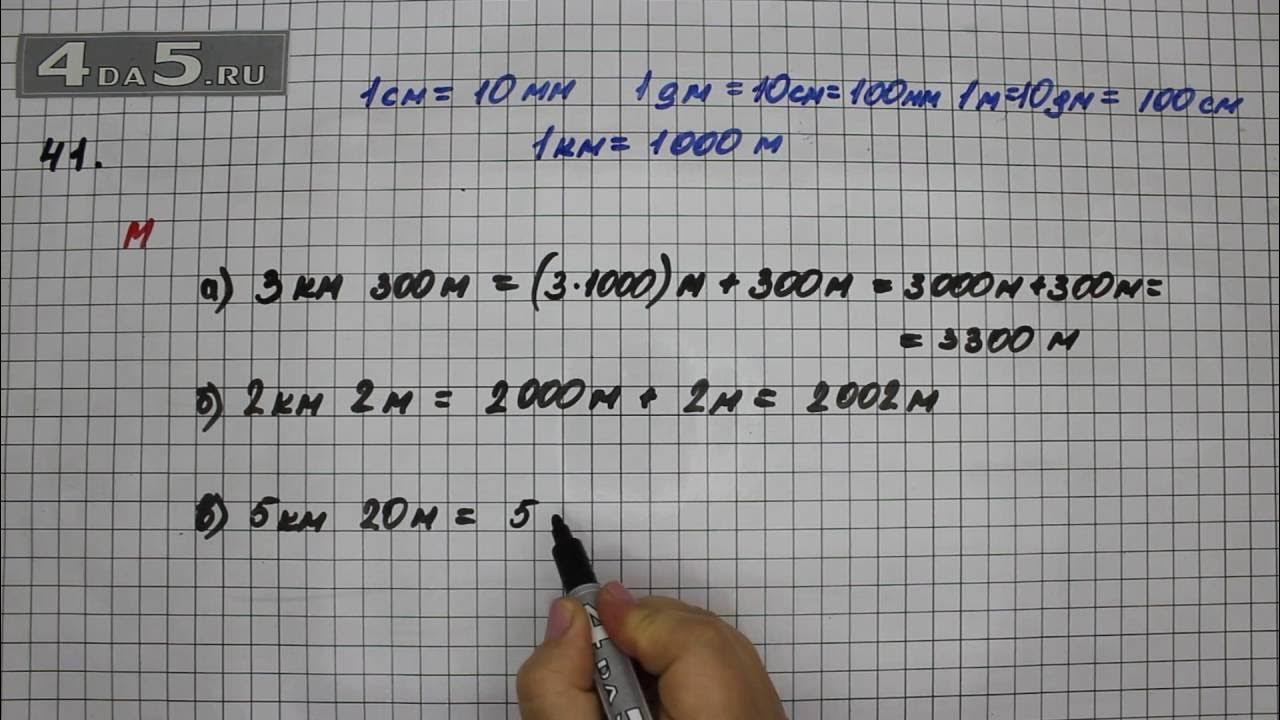 4DA5.RU
1см = 10 мм 1 дм = 10см = 100мм 1м=10дм = 100 см
1км = 1000 м
41.
М
а) 3 км 300 м = (3·1000) м + 300 м = 3000м+300м=
= 3300 м
б) 2км 2м = 2000м + 2м = 2002м
в) 5км 20м = 5